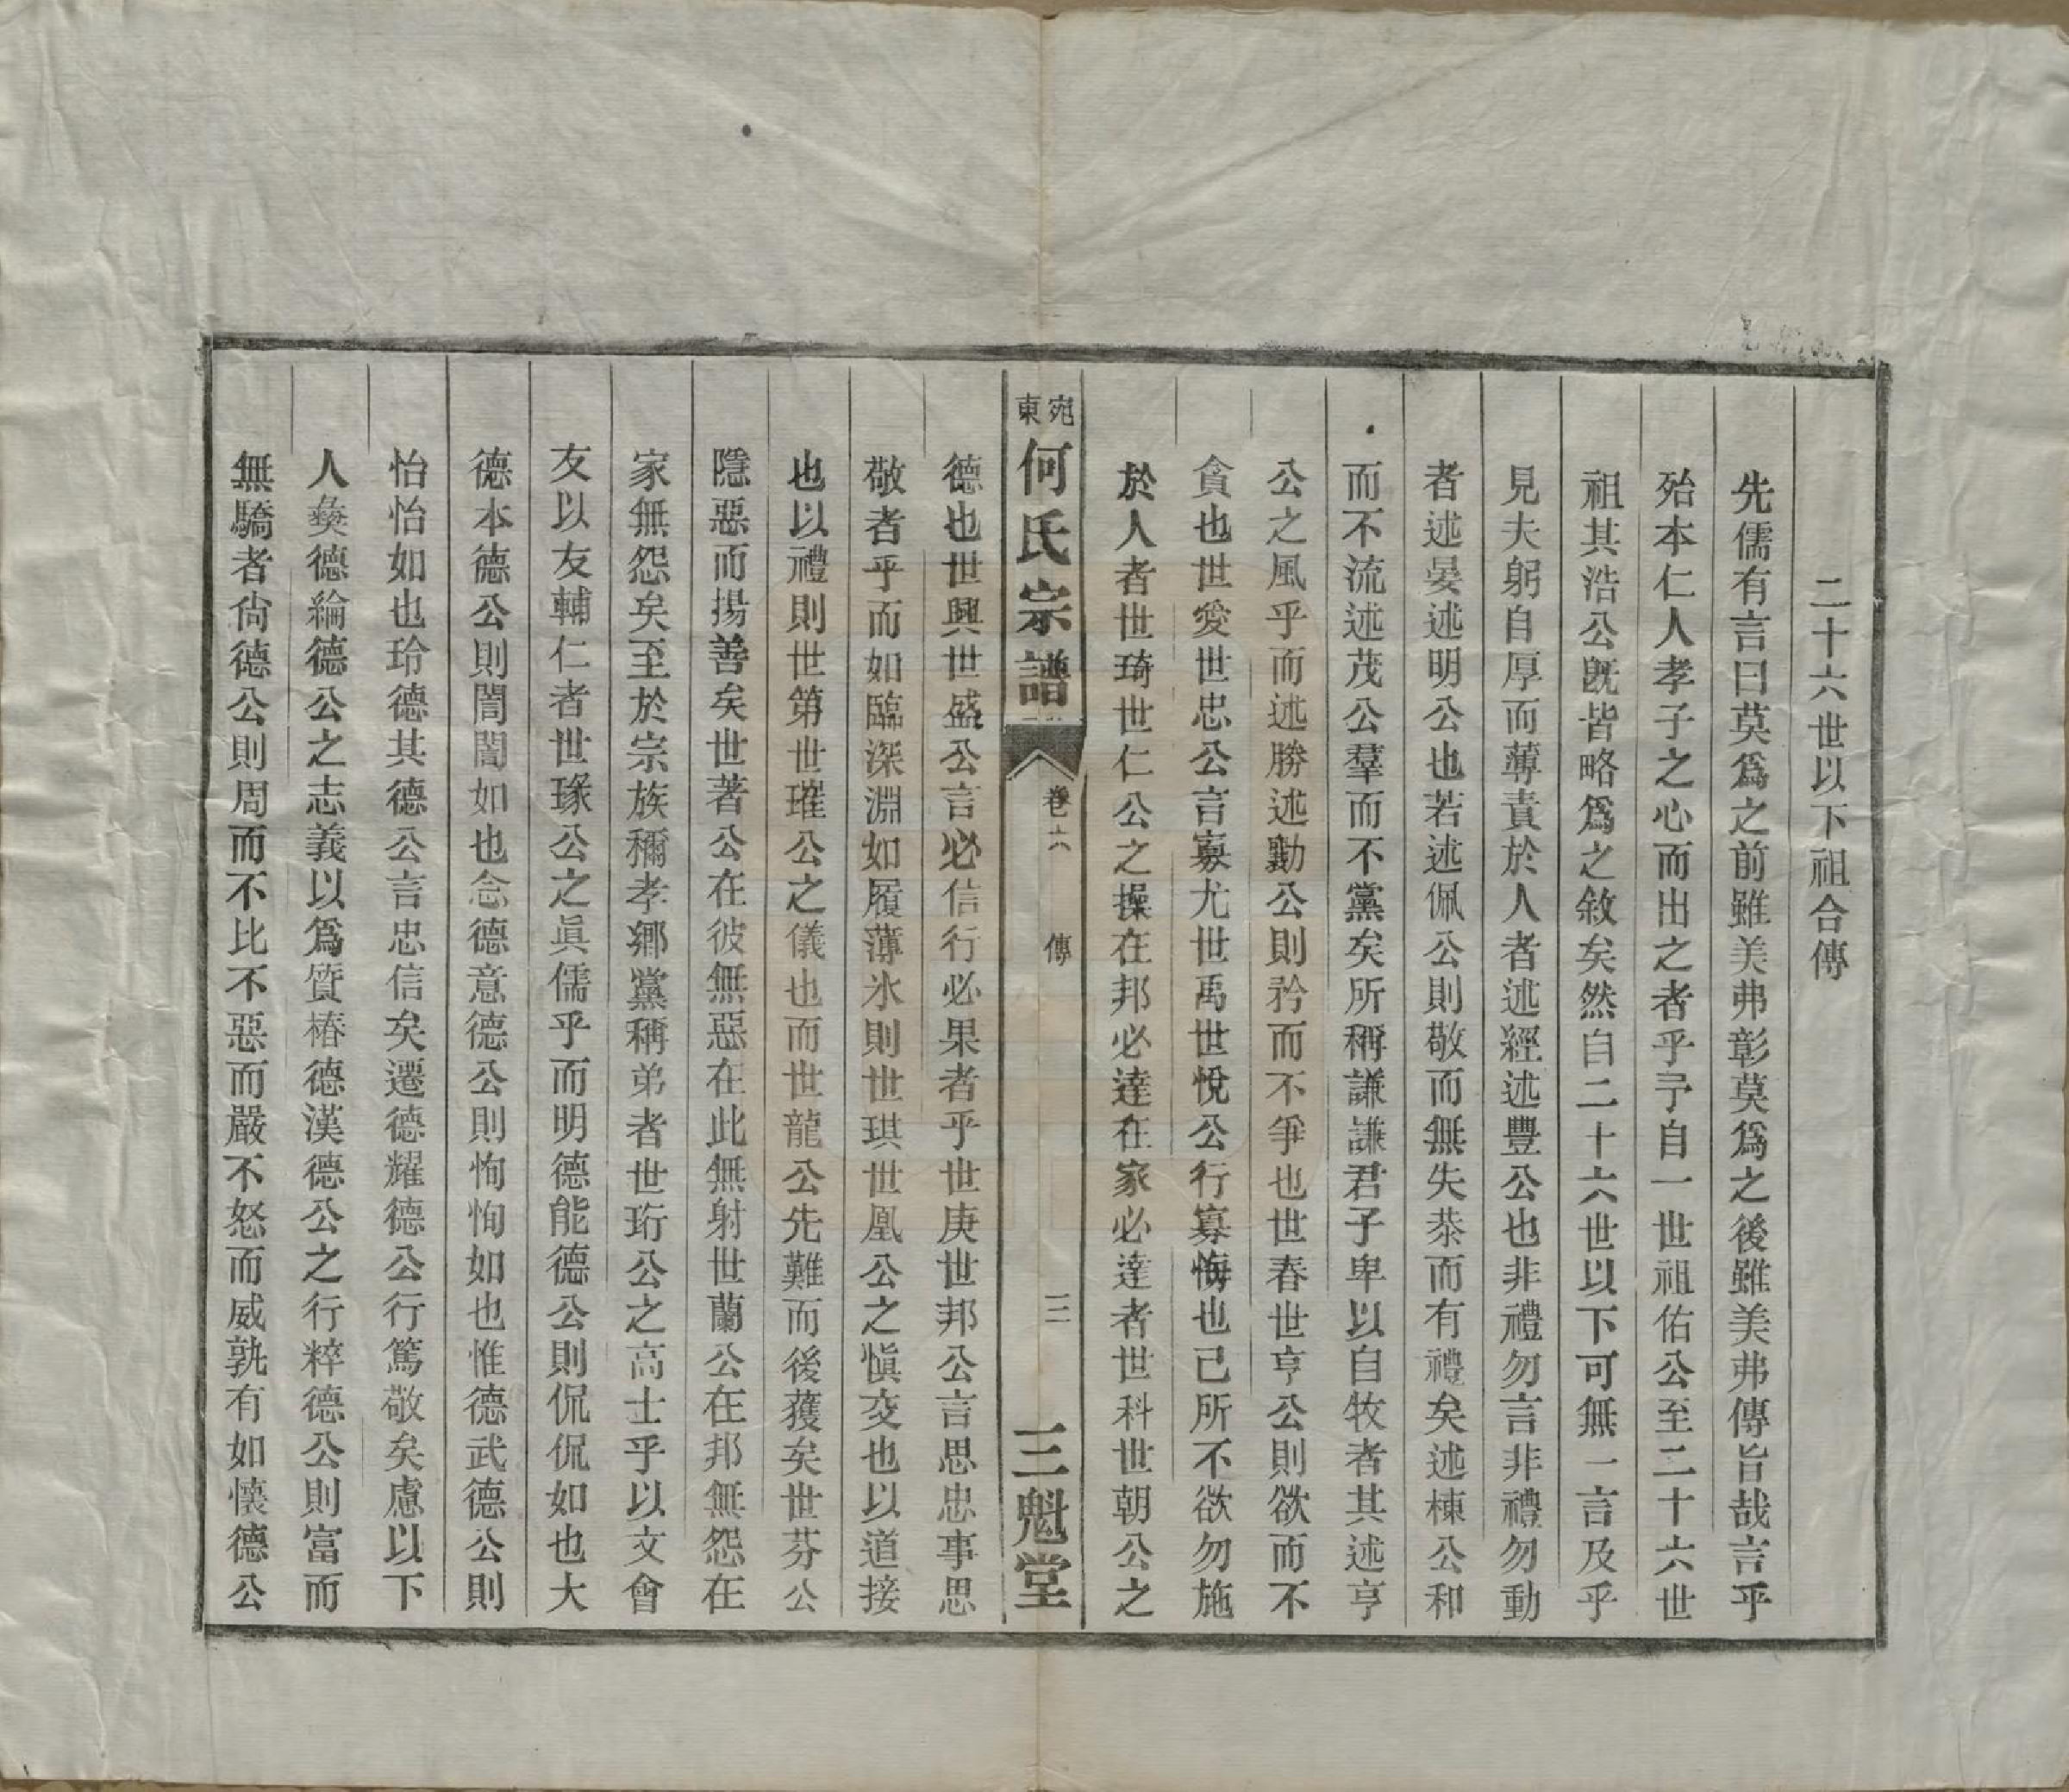 二十六世以下祖合傳
先儒有言曰莫爲之前雖美弗彰莫爲之後雖美弗傳旨哉言乎
殆本仁人孝子之心而出之者乎予自一世祖佑公至二十六世
祖其浩公旣皆略爲之敘矣然自二十六世以下可無一言及乎
見夫躬自厚而薄責於人者述經述豐公也非禮勿言非禮勿動
者述晏述明公也若述佩公則敬而無失恭而有禮矣述棟公和
而不流述茂公羣而不黨矣所稱謙謙君子卑以自牧者其述亨
公之風乎而述勝述勷公則矜而不爭也世春世亨公則欲而不
貪也世愛世忠公言寡尤世禹世悅公行寡悔也己所不欲勿施
於人者世琦世仁公之操在邦必達在家必達者世科世朝公之
宛東何氏宗譜 卷六 傳 三 三魁堂
德也世興世盛公言必信行必果者乎世庚世邦公言思忠事思
敬者乎而如臨深淵如履薄氷則世琪世凰公之愼交也以道接
也以禮則世第世㻶公之儀也而世龍公先難而後獲矣世芬公
隱惡而揚善矣世著公在彼無惡在此無射世蘭公在邦無怨在
家無怨矣至於宗族稱孝鄉黨稱弟者世珩公之高士乎以文會
友以友輔仁者世瑑公之眞儒乎而明德能德公則侃侃如也大
德本德公則誾誾如也念德意德公則恂恂如也惟德武德公則
怡怡如也玲德其德公言忠信矣遷德耀德公行篤敬矣慮以下
人彝德綸德公之志義以爲質椿德漢德公之行粹德公則富而
無驕者尙德公則周而不比不惡而嚴不怒而威孰有如懷德公